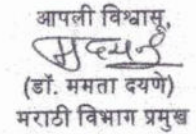 आपली विश्वासू,
(डॉ. ममता दयणे)
मराठी विभाग प्रमुख